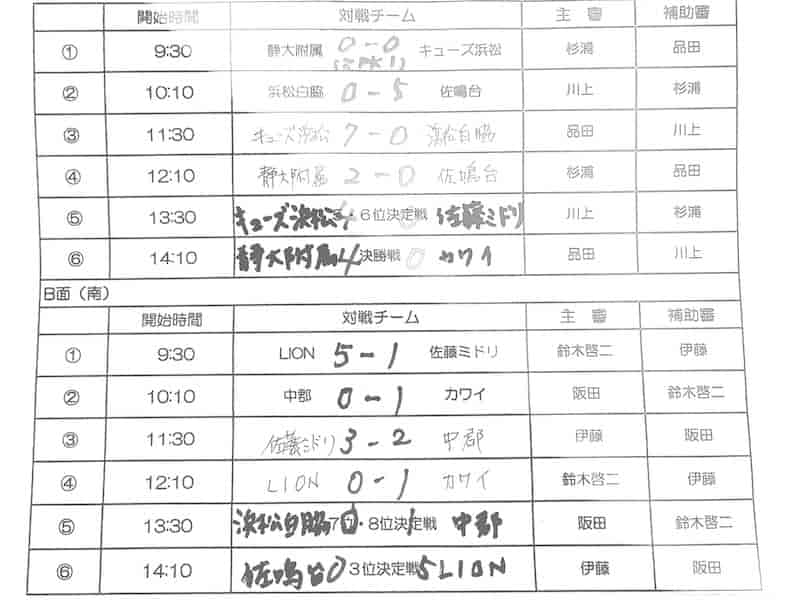 開始時間 対戦チーム 主 審 補助審
① 9:30 静大附属 0-0 キューズ浜松 杉浦 品田
② 10:10 浜松白脇 0-5 佐鳴台 川上 杉浦
③ 11:30 キューズ浜松 7-0 浜松白脇 品田 川上
④ 12:10 静大附属 2-0 佐鳴台 杉浦 品田
⑤ 13:30 キューズ浜松 4 ・6位決定戦 0 佐藤ミドリ 川上 杉浦
⑥ 14:10 静大附属 4 決勝戦 0 カワイ 品田 川上
B面(南)
開始時間 対戦チーム 主 審 補助審
① 9:30 LION 5-1 佐藤ミドリ 鈴木啓二 伊藤
② 10:10 中郡 0-1 カワイ 阪田 鈴木啓二
③ 11:30 佐藤ミドリ 3-2 中郡 伊藤 阪田
④ 12:10 LION 0-1 カワイ 鈴木啓二 伊藤
⑤ 13:30 浜松白脇 0 ・8位決定戦 1 中郡 阪田 鈴木啓二
⑥ 14:10 佐鳴台 0 3位決定戦 5 LION 伊藤 阪田